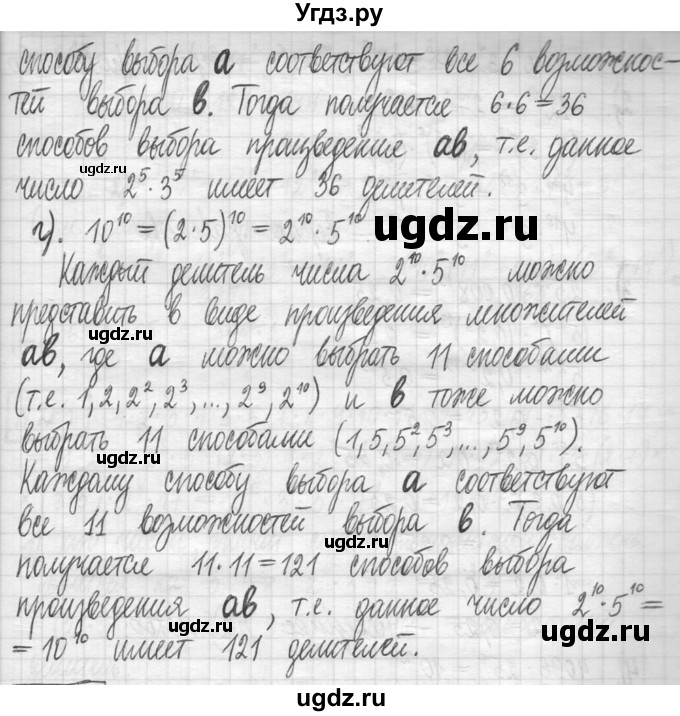 Угдз.ру
способу выбора a соответствуют все 6 возможнос-
тей выбора b. Тогда получается 6·6=36
способов выбора произведения ab, т.е. данное
ugdz.ru
число 2⁵·3⁵ имеет 36 делителей.
ugdz.ru
г). 10¹⁰ = (2·5)¹⁰ = 2¹⁰·5¹⁰
ugdz.ru
Каждый делитель числа 2¹⁰·5¹⁰ можно
представить в виде произведения множителей
ugdz.ru
ab, где a можно выбрать 11 способами
(т.е. 1,2,2²,2³,...,2⁹,2¹⁰) и b тоже можно
ugdz.ru
выбрать 11 способами (1,5,5²,5³,...,5⁹,5¹⁰).
ugdz.ru
Каждому способу выбора a соответствуют
все 11 возможностей выбора b. Тогда
ugdz.ru
получается 11·11=121 способов выбора
произведения ab, т.е. данное число 2¹⁰·5¹⁰=
ugdz.ru
ugdz.ru
=10¹⁰ имеет 121 делителей.
ugdz.ru
ugdz.ru